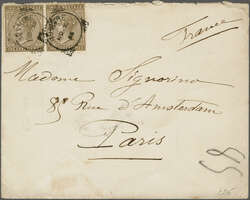 France
Madame Signorino
85 Rue d'Amsterdam
Paris